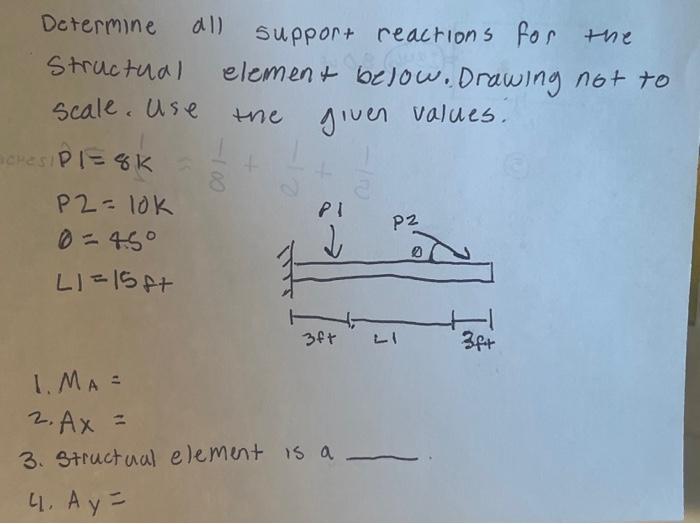 Determine all support reactions for the
Structual element below. Drawing not to
scale. Use the given values.
P1 = 8K
P2 = 10K
θ = 45°
L1 = 15 ft
P1
P2
θ
3ft L1 3ft
1. MA =
2. Ax =
3. Structual element is a ____.
4. Ay =